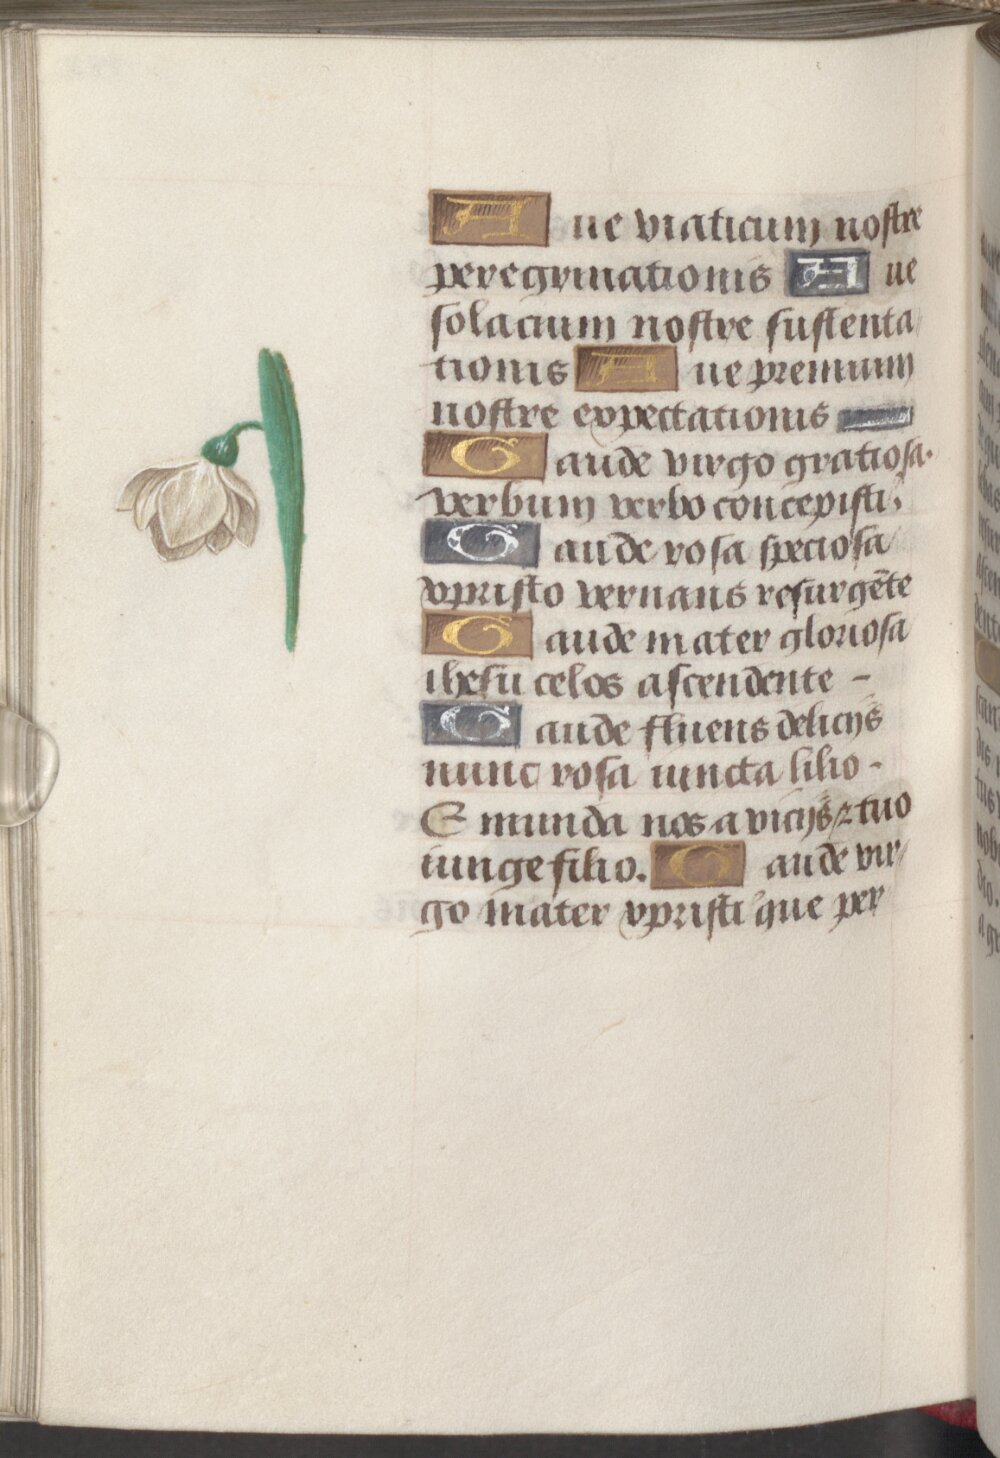 Aue viaticum nostre
peregrinationis Aue
solacium nostre sustenta
tionis Aue premium
nostre expectationis
Gaude virgo gratiosa.
verbum verbo concepisti.
Gaude rosa speciosa
xpristo vernans resurgēte
Gaude mater gloriosa
ihesu celos ascendente -
Gaude fluens delicijs
nunc rosa iuncta lilio -
Emunda nos a vicijs ⁊ tuo
iunge filio. Gaude vir/
go mater xpristi que per